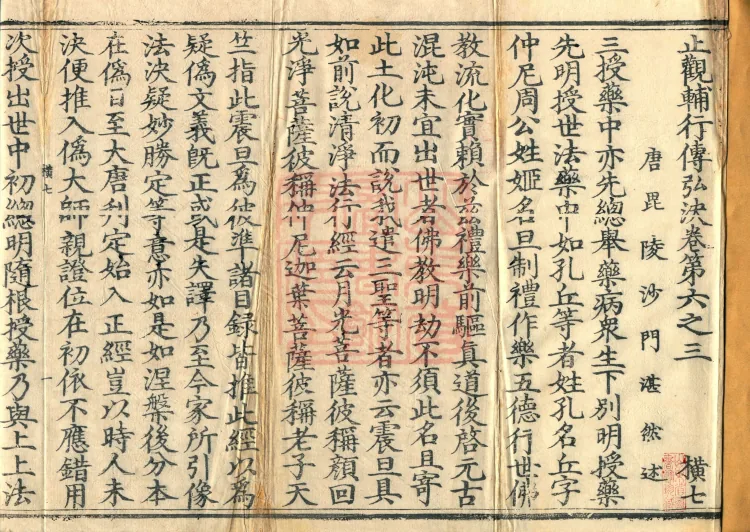 止觀輔行傳弘決卷第六之三 橫七
唐毘陵沙門湛然述
三授藥中亦先總舉藥病衆生下別明授藥
先明授世法藥中如孔丘等者姓孔名丘字
仲尼周公姓姬名旦制禮作樂五德行世佛
教流化實賴於茲禮樂前驅真道後啓元古
混沌未宜出世者佛教明劫不須此名且寄
此土化初而說我遣三聖等者亦云震旦具
如前說清淨法行經云月光菩薩彼稱顏回
光淨菩薩彼稱仲尼迦葉菩薩彼稱老子天
竺指此震旦為彼準諸目録皆推此經以為
疑偽文義既正或是失譯乃至今家所引像
法決疑妙勝定等意亦如是如涅槃後分本
在偽目至大唐刊定始入正經豈以時人未
決便推入偽大師親證位在初依不應錯用
橫七
次授出世中初總明隨根授藥乃與上上法